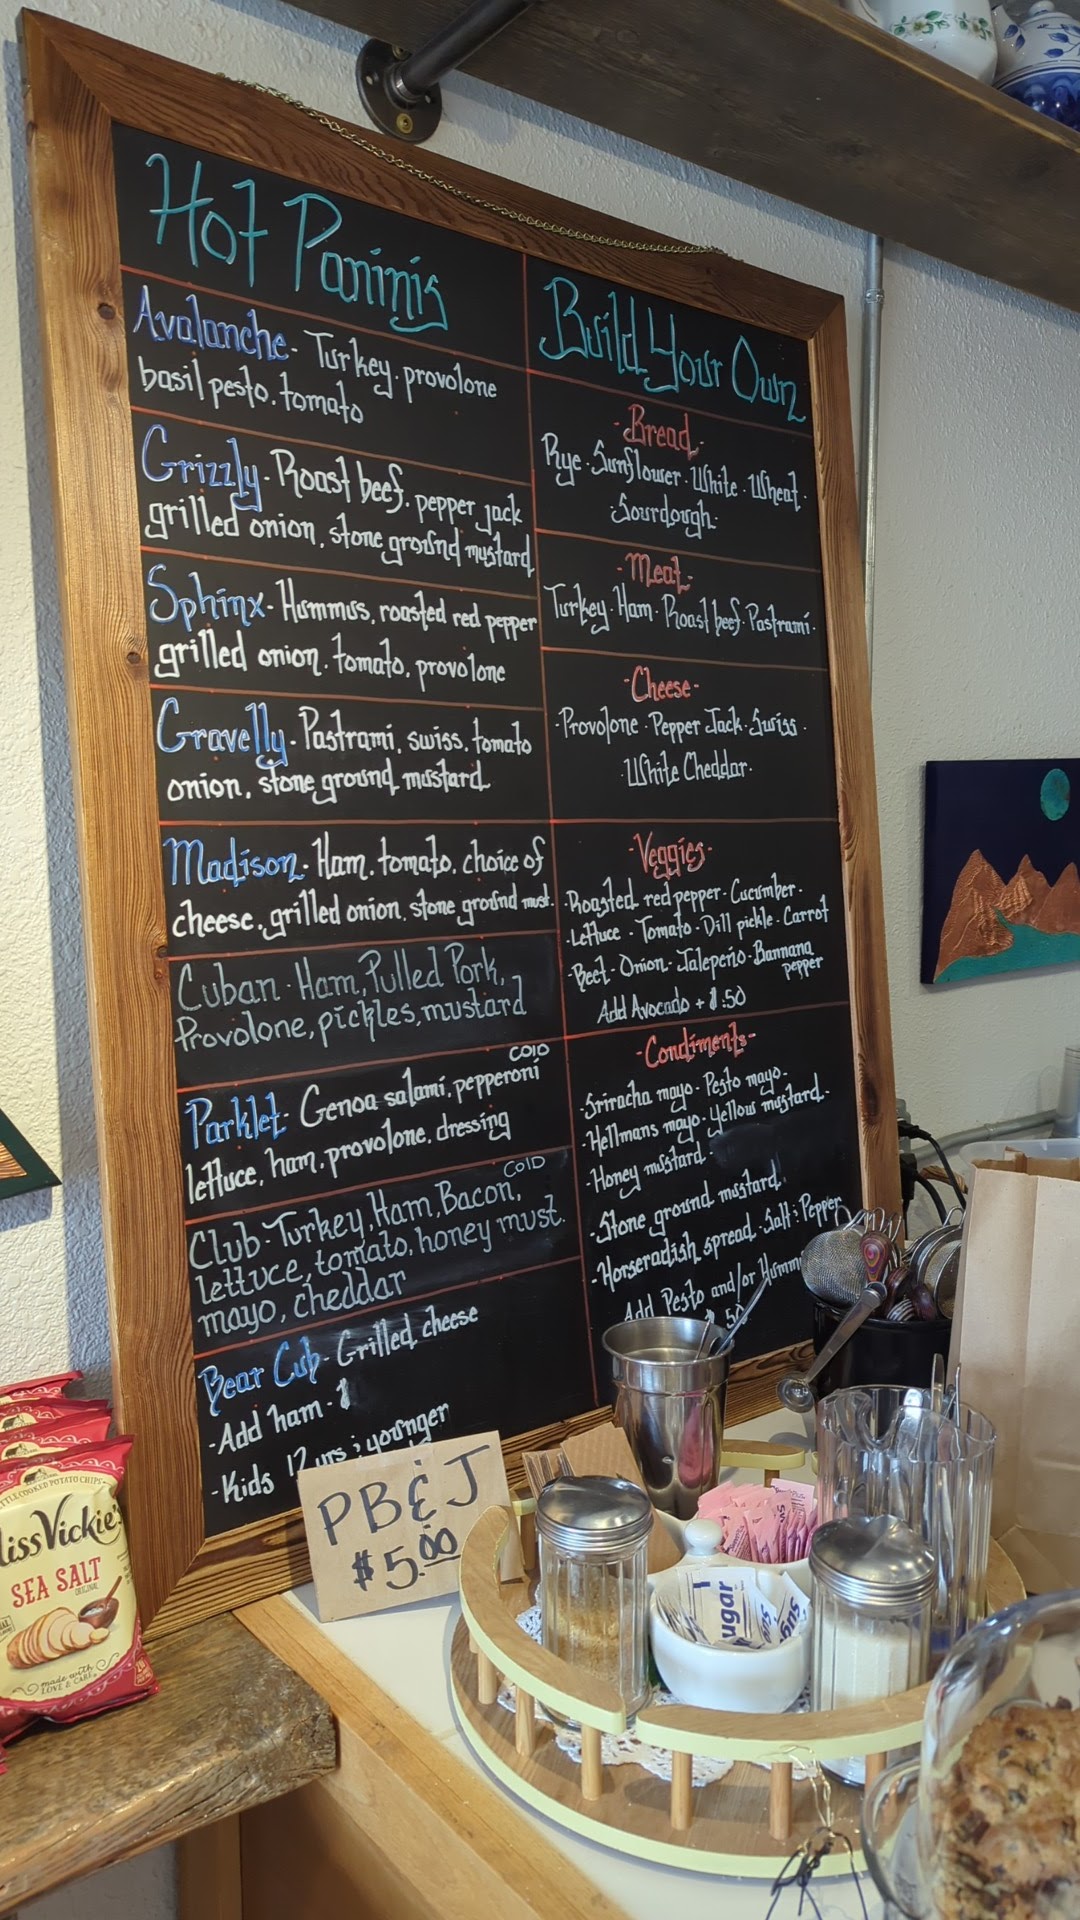 Hot Paninis
Avalanche - Turkey. provolone
basil pesto. tomato
Grizzly - Roast beef. pepper jack
grilled onion, stone ground mustard
Sphinx - Hummus, roasted red pepper
grilled onion. tomato, provolone
Gravelly - Pastrami, swiss, tomato
onion, stone ground mustard
Madison - Ham, tomato, choice of
cheese, grilled onion, stone ground must.
Cuban - Ham, Pulled Pork,
Provolone, pickles, mustard
COLD
Parklet - Genoa salami, pepperoni
lettuce, ham, provolone, dressing
COLD
Club - Turkey, Ham, Bacon,
lettuce, tomato, honey must.
mayo, cheddar
Bear Cub - Grilled cheese
- Add ham - $1
- Kids 12 yrs & younger
Build Your Own
- Bread -
Rye · Sunflower · White · Wheat ·
· Sourdough ·
- Meat -
Turkey · Ham · Roast beef · Pastrami ·
- Cheese -
· Provolone · Pepper Jack · Swiss ·
· White Cheddar ·
- Veggies -
· Roasted red pepper · Cucumber ·
· Lettuce · Tomato · Dill pickle · Carrot
· Beet · Onion · Jalepeño · Bannana
pepper
Add Avocado + $1.50
- Condiments -
· Sriracha mayo · Pesto mayo ·
· Hellmans mayo · yellow mustard ·
· Honey mustard ·
· Stone ground mustard ·
· Horseradish spread · Salt & Pepper
Add Pesto and/or Humm
50
PB & J
$5.00
KETTLE COOKED POTATO CHIPS
Miss Vickie's
SEA SALT
ORIGINAL
made with
LOVE & CARE
Sugar